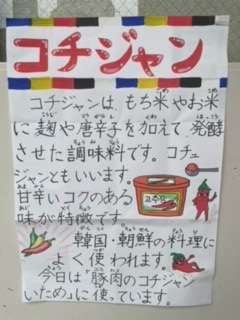 コチジャン
コチジャンは、もち米やお米
に麹や唐辛子を加えて発酵
させた調味料です。コチュ
ジャンともいいます。
甘辛いコクのある
味が特徴です。
고추장
韓国・朝鮮の料理に
よく使われます。
今日は「豚肉のコチジャン
いため」に使っています。